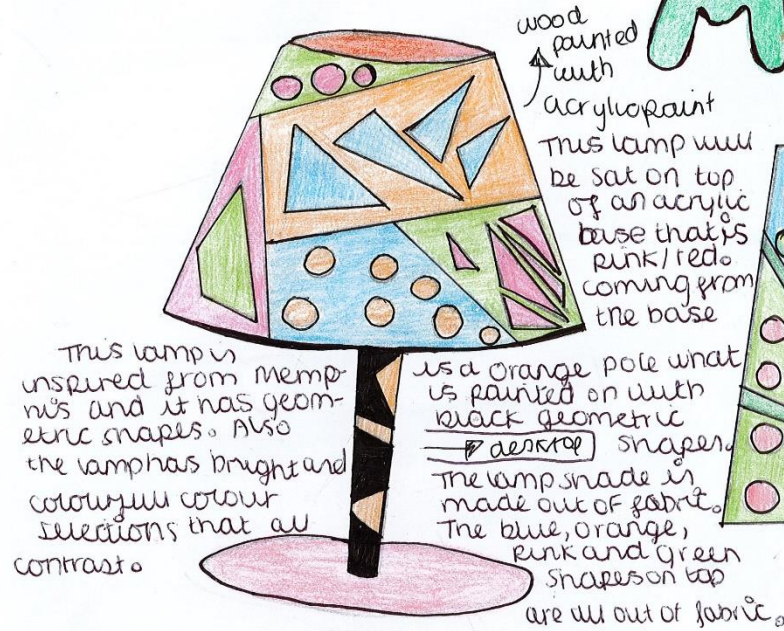 wood
painted
with
acrylic paint
This lamp will
be sat on top
of an acrylic
base that is
pink/red.
coming from
the base
is a orange pole what
is painted on with
black geometric
desktop shapes.
The lamp shade is
made out of fabric.
The blue, orange,
pink and green
shapes on top
are all out of fabric.
This lamp is
inspired from Memp-
his and it has geom-
etric shapes. Also
the lamp has bright and
colourfull colour
selections that all
contrast.